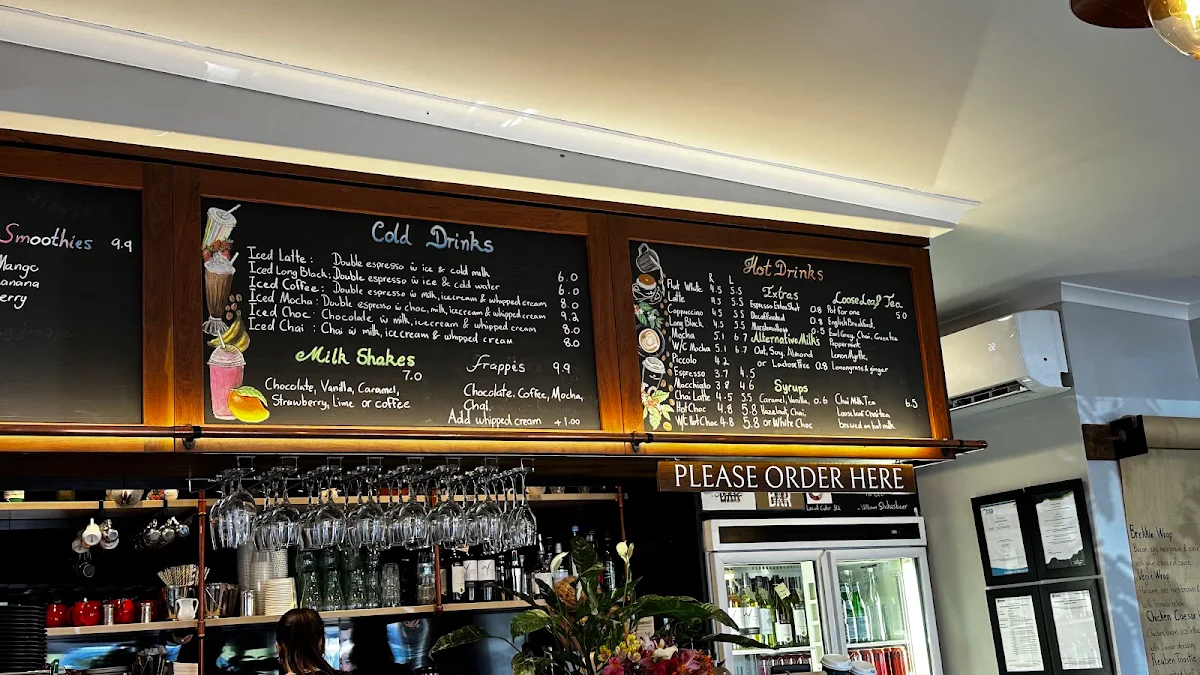 Smoothies 9.9
Mango
anana
erry
Cold Drinks
Iced Latte : Double espresso w ice & cold milk 6.0
Iced Long Black : Double espresso w ice & cold water 6.0
Iced Coffee : Double espresso w milk, icecream & whipped cream 8.0
Iced Mocha : Double espresso w choc, milk, icecream & whipped cream 9.2
Iced Choc : Chocolate w milk, icecream & whipped cream 8.0
Iced Chai : Chai w milk, icecream & whipped cream 8.0
Milk Shakes
7.0
Chocolate, Vanilla, Caramel,
Strawberry, Lime or coffee
Frappès 9.9
Chocolate, Coffee, Mocha,
Chai.
Add whipped cream +1.00
Hot Drinks
R L
Flat White 4.5 5.5
Latte 4.5 5.5
Cappuccino 4.5 5.5
Long Black 4.5 5.5
Mocha 5.1 6.7
W/C Mocha 5.1 6.7
Piccolo 4.2
Espresso 3.7 4.5
Macchiato 3.8 4.6
Chai Latte 4.5 5.5
Hot Choc 4.8 5.8
W/C Hot Choc 4.8 5.8
Extras
Espresso Extra Shot 0.8
Decaffeinated 0.8
Marshmallows 0.5
Alternative Milks
Oat, Soy, Almond
or Lactose Free 0.8
Syrups
Caramel, Vanilla, 0.6
Hazelnut, Chai,
or White Choc
Loose Leaf Tea
Pot for one 5.0
English Breakfast,
Earl Grey, Chai, Green tea
Peppermint,
Lemon Myrtle,
Lemongrass & ginger
Chai Milk Tea 6.5
Loose Leaf Chai tea
brewed on hot milk
PLEASE ORDER HERE
BAR
Brekkie Wrap
Vegie Wrap
Chicken Caesar
Reuben Toastie